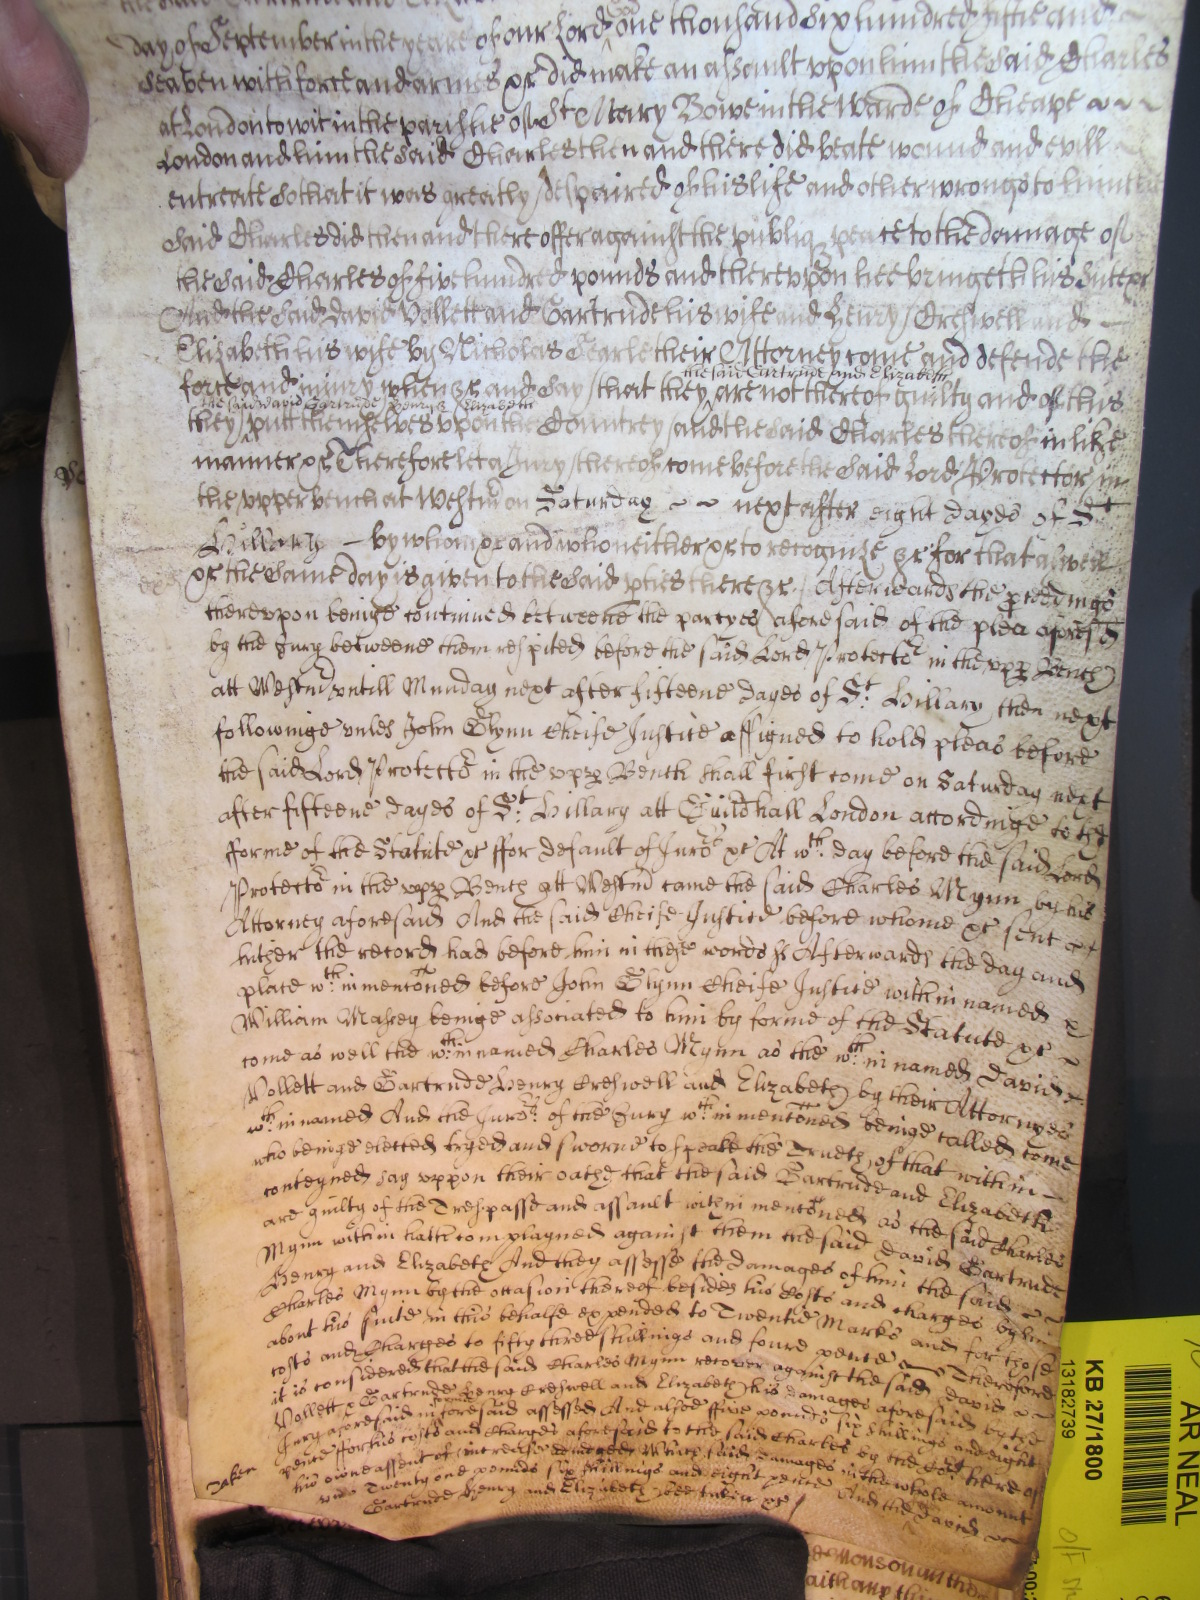 day of September in the yeare of our Lord one thousand six hundred fiftie and
Seaven with force and armes &c did make an assault upon him the said Charles
at London to wit in the parishe of St Mary Bowe in the Warde of Cheape
London and him the said Charles then and there did beate wound and evill
entreate so that it was greatly despaired of his life and other wrongs to him the
said Charles did then and there offer against the publiq peace to the dammage of
the said Charles of five hundred pounds and thereupon hee bringeth his suite &c
And the said David Vollett and Gartrude his wife and Henry Creswell and
Elizabeth his wife by Nicholas Searle their Attorney come and defende the
force and injury when &c and say that they the said Gartrude and Elizabeth are not thereof guilty and of this
they the said David Gartrude Henry & Elizabeth putt themselves upon the Countrey and the said Charles thereof in like
manner &c Therefore let a Jury thereof come before the said Lord Protector in
the upper bench at Westmr on Saturday next after eight dayes of St
Hillary by whom &c and who neither &c to recognize &c for that aswell
&c the same day is given to the said pties there &c Afterwards the pceedings
thereupon beinge continued betweene the partyes aforesaid of the plea aforesd
by the Jury betweene them respited before the said Lord Protector in the upp Bench
att Westmr untill Munday next after fifteene dayes of St Hillary then next
followinge unles John Glynn Cheife Justice assigned to hold pleas before
the said Lord Protector in the upp Bench shall first come on Saturday next
after fifteene dayes of St Hillary att Guildhall London accordinge to the
fforme of the Statute &c ffor default of Juros &c At wch day before the said Lord
Protector in the upp Bench att Westmr came the said Charles Mynn by his
Attorney aforesaid And the said Cheife Justice before whome &c sent
hither the record had before him in these words ss Afterwards the day and
place wthin mentoned before John Glynn Cheife Justice within named
William Massey beinge associated to him by forme of the Statute &c
come as well the wthin named Charles Mynn as the wthin named David
Vollett and Gartrude Henry Creswell and Elizabeth by their Attornyes
wthin named And the Juros of the Jury wthin mentoned beinge called come
who beinge elected tryed and sworne to speake the Trueth of that within
conteyned say uppon their oathes that the said Gartrude and Elizabeth
are guilty of the Trespasse and assault within mentoned as the said Charles
Mynn within hath complayned against them the said David Gartrude
Henry and Elizabeth And they assesse the damages of him the said
Charles Mynn by the occasion thereof besides his Costs and charges by him
about his suite in this behalfe expended to Twentie Marks and for those
costs and Charges to fifty three shillings and foure pence Therefore
it is considered that the said Charles Mynn recover against the said David
Vollett Gartrude Henry Creswell and Elizabeth his damages aforesaid by the
Jury aforesaid in forme aforesaid assessed And alsoe ffive pounds six shillings and eight
pence ffor his costs and charges aforesaid to the said Charles by the Cort here of
his owne assent of increase Which said damages in the whole amount
unto Twenty one pounds six shillings and eight pence And the David
Gartrude Henry and Elizabeth bee taken &c
Taken
KB 27/1800
13182739
AR NEAL